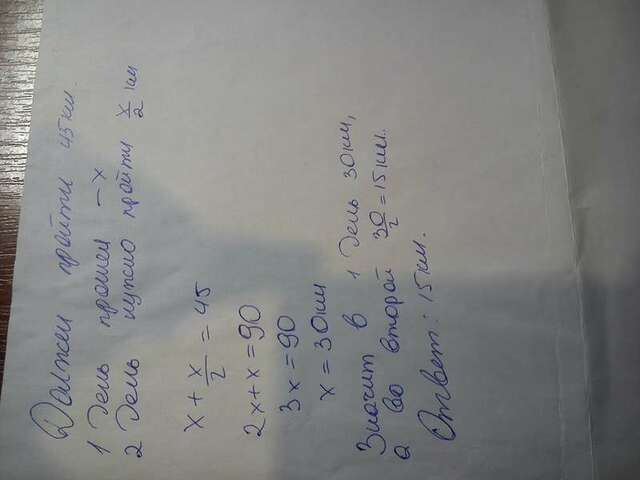 Должен пройти 45 км.
1 День прошел – x
2 День нужно пройти x/2 км
x + x/2 = 45
2x+x=90
3x=90
x=30км
Значит в 1 день 30км,
а во второй 30/2=15км.
Ответ: 15км.